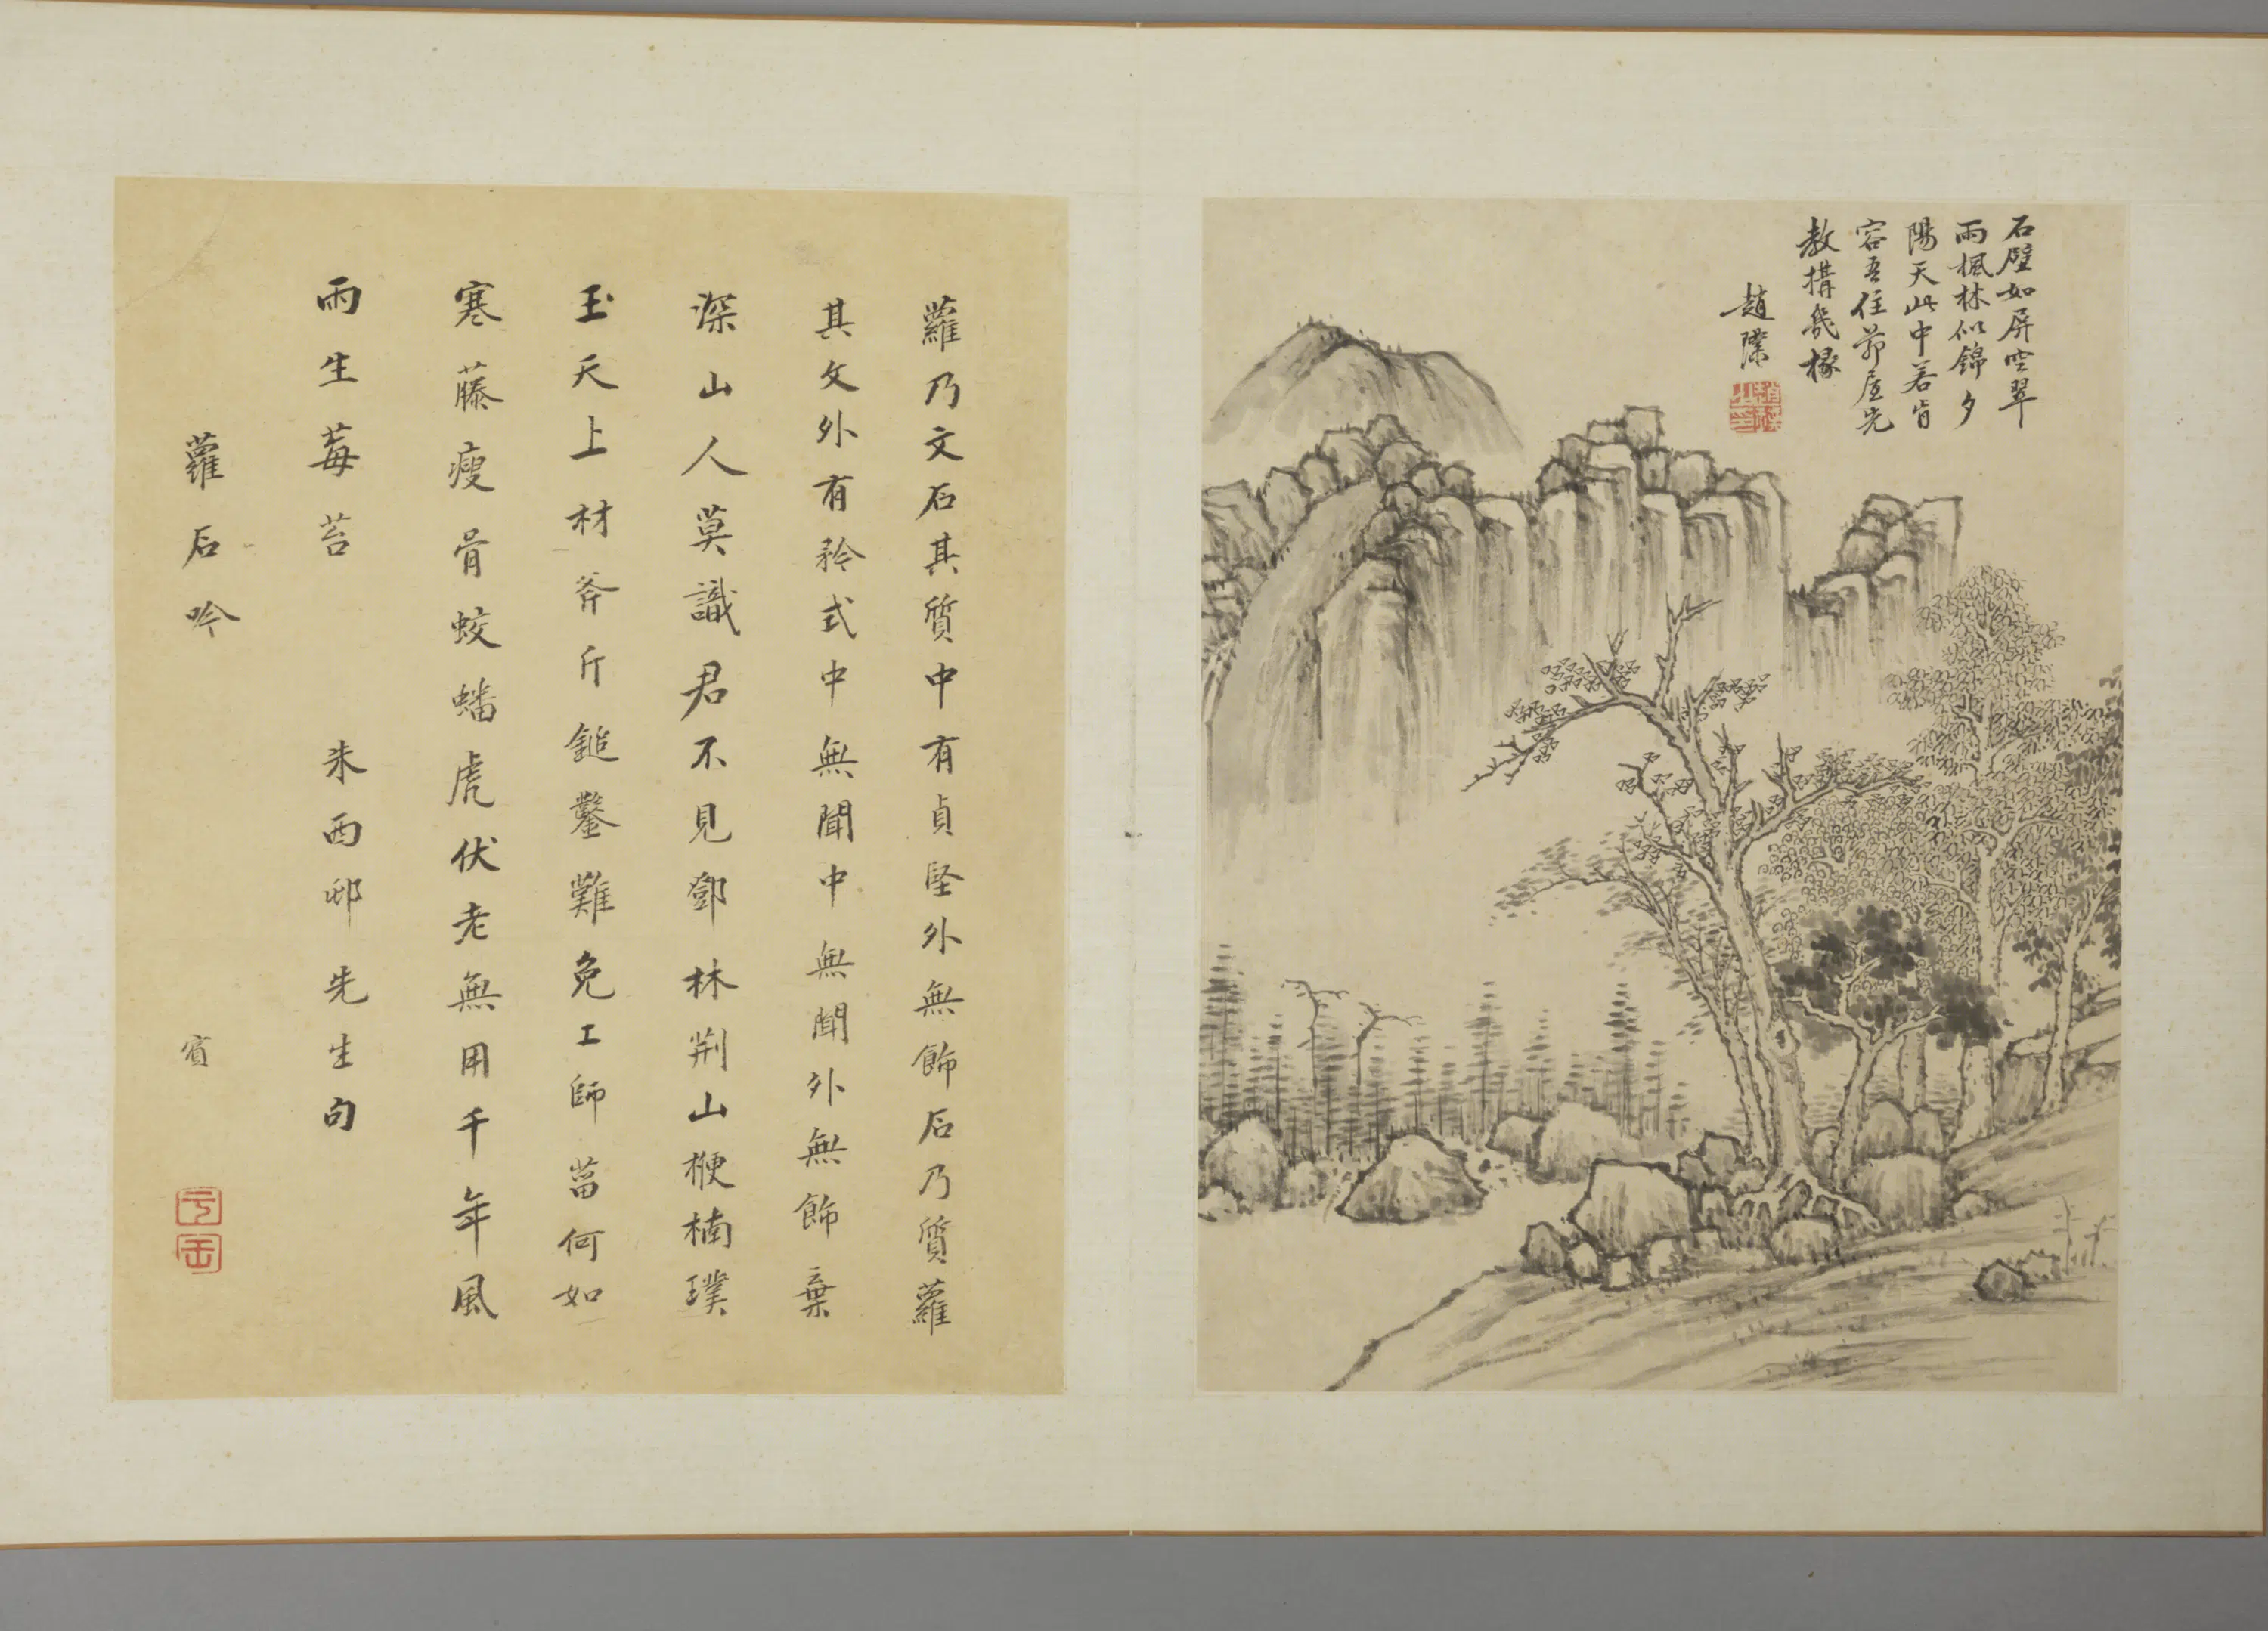 石壁如屏空翠
雨楓林似錦夕
陽天此中若肯
容吾住茆屋先
教搆幾椽
趙澯
蘿乃文石其質中有貞堅外無飾石乃質蘿
其文外有矜式中無聞中無聞外無飾棄
深山人莫識君不見鄧林荆山楩楠璞
玉天上材斧斤鎚鑿難免工師菑何如
寒藤瘦骨蛟蟠虎伏老無用千年風
雨生莓苔
朱西邨先生句
蘿石吟
賓